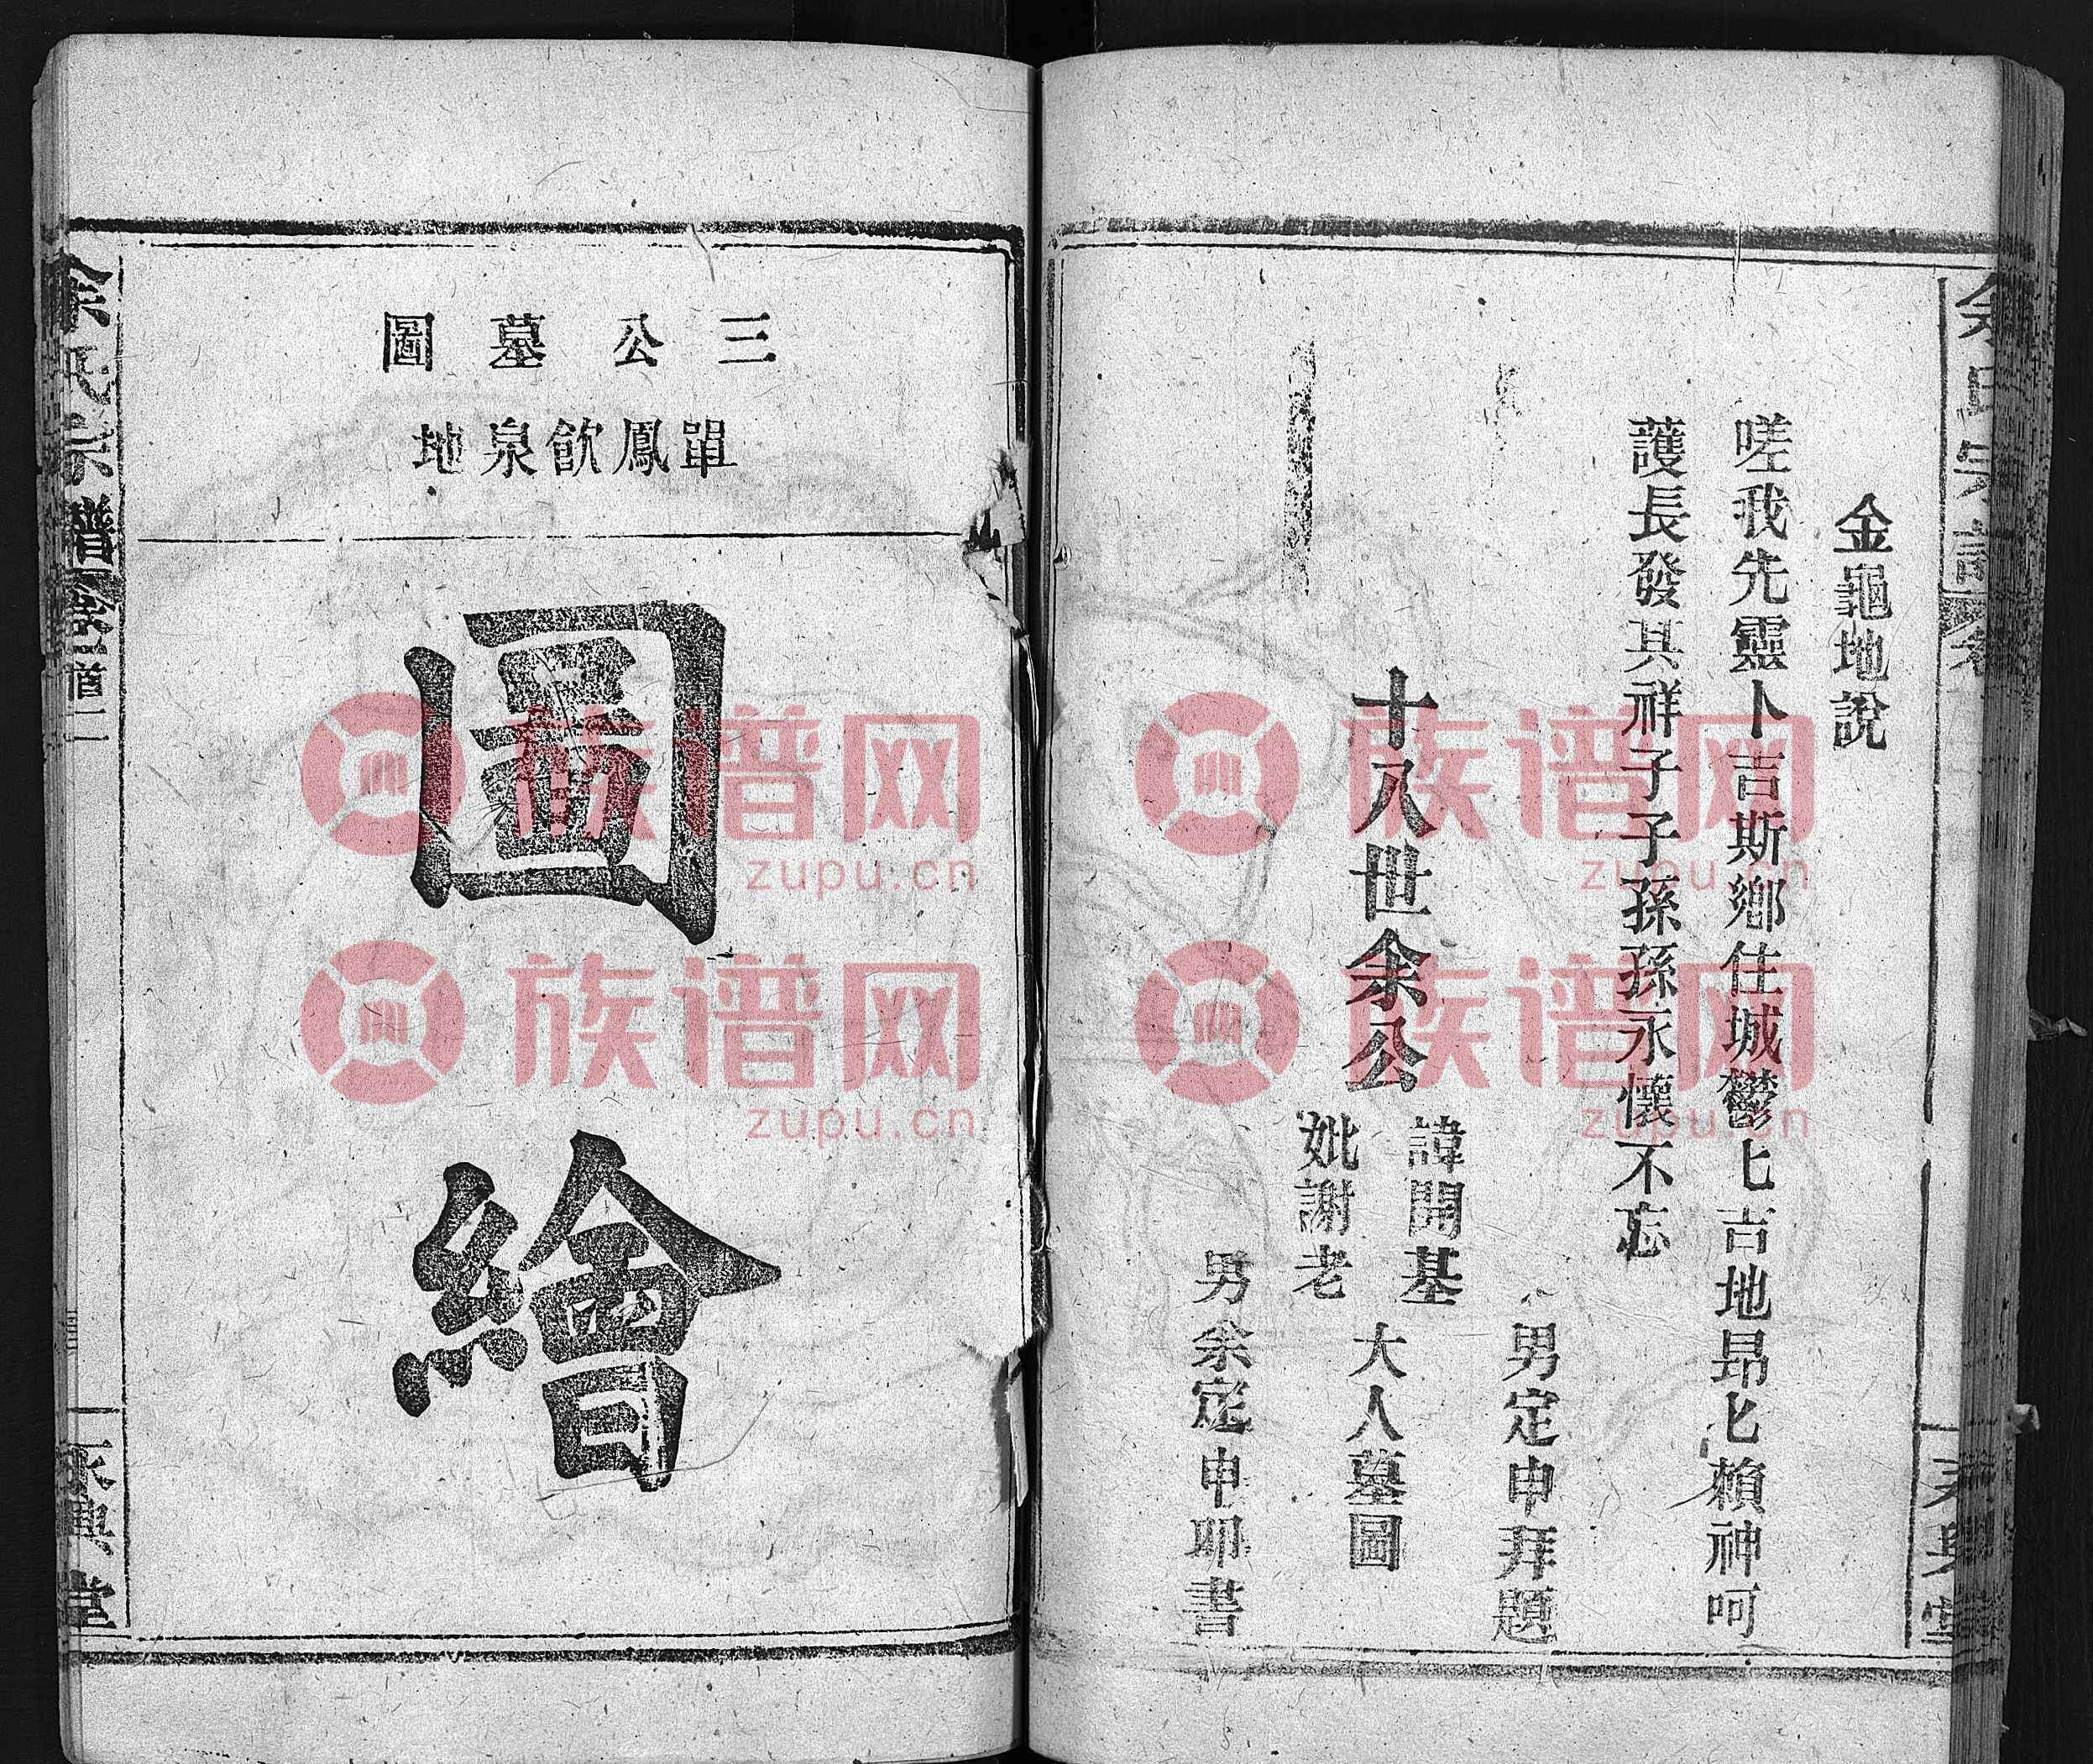 金龜地說
嗟我先靈卜吉斯鄉住城鬱匕吉地昂匕賴神呵
護長發其祥子子孫孫永懷不忘
男定申拜題
諱開基
十八世余公
大人墓圖
妣謝老
男余定申卯書
三公墓圖
單鳳飲泉地
圖繪
余氏宗譜
卷首二
永興堂
族谱网
zupu.cn
族谱网
zupu.cn
族谱网
zupu.cn
族谱网
zupu.cn